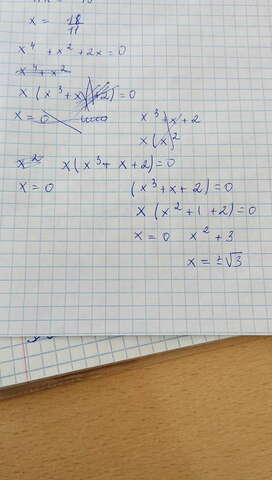 x = 18/11
x⁴ + x² + 2x = 0
x⁴ + x²
x (x³ + x + 2) = 0
x = 0
x³ + x + 2
x (x)²
x² x(x³ + x + 2) = 0
x = 0 (x³ + x + 2) = 0
x (x² + 1 + 2) = 0
x = 0 x² + 3
x = ±√3